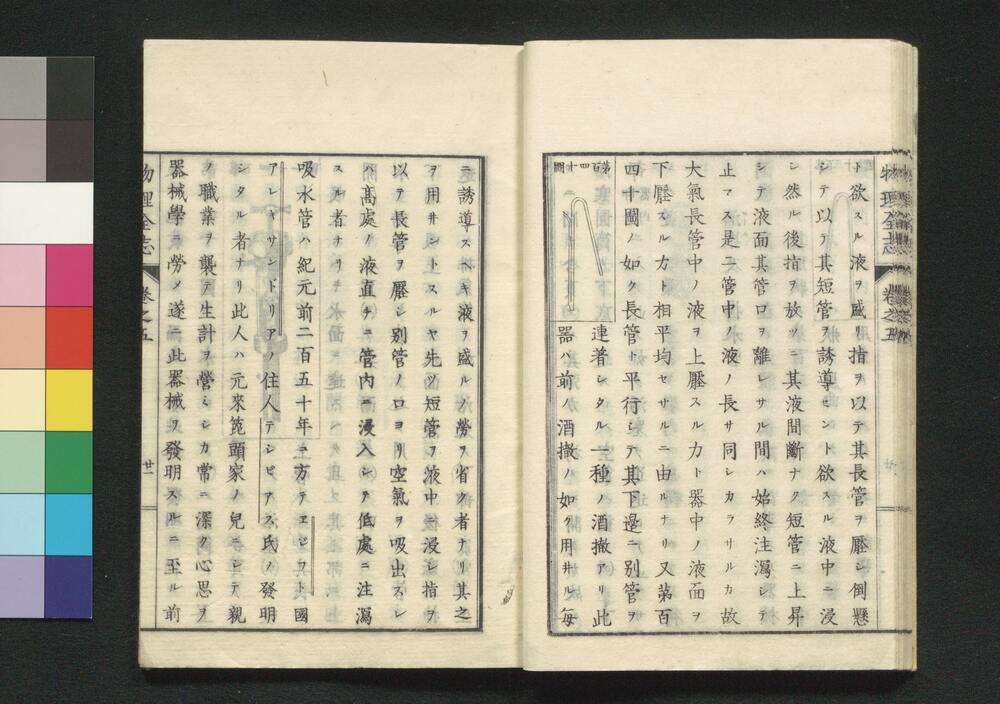 物理全志 卷之五
ト欲スル液ヲ盛リ指ヲ以テ其長管ヲ壓シ倒懸
シテ以テ其短管ヲ誘導セント欲スル液中ニ浸
シ然ル後指ヲ放ツニ其液間斷ナク短管ニ上昇
シテ液面其管口ヲ離レサル間ハ始終注瀉シテ
止マス是二管中ノ液ノ長サ同シカラサルカ故
大氣長管中ノ液ヲ上壓スル力ト器中ノ液面ヲ
下壓スル力ト相平均セサルニ由ルナリ又苐百
四十圖ノ如ク長管ト平行シテ其下邉ニ別管ヲ
連着シタル一種ノ酒撤アリ此
器ハ前ノ酒撤ノ如ク用井ル毎
苐百四十圖
ニ誘導スヘキ液ヲ盛ルノ勞ヲ省ク者ナリ其之
ヲ用井ントスルヤ先ツ短管ヲ液中ニ浸シ指ヲ
以テ長管ヲ壓シ別管ノ口ヨリ空氣ヲ吸出スレ
ハ髙處ノ液直チニ管内ニ浸入シテ低處ニ注瀉
スル者ナリ
吸水管ハ紀元前二百五十年ニ方テヱジフト國
アレキサンドリアノ住人テシビアス氏ノ發明
シタル者ナリ此人ハ元來箆頭家ノ兒ニシテ親
ノ職業ヲ襲テ生計ヲ營ミシカ常ニ深ク心思ヲ
器械學ニ勞メ遂ニ此器械ヲ發明スルニ至ル前
物理全志 卷之五 廿一